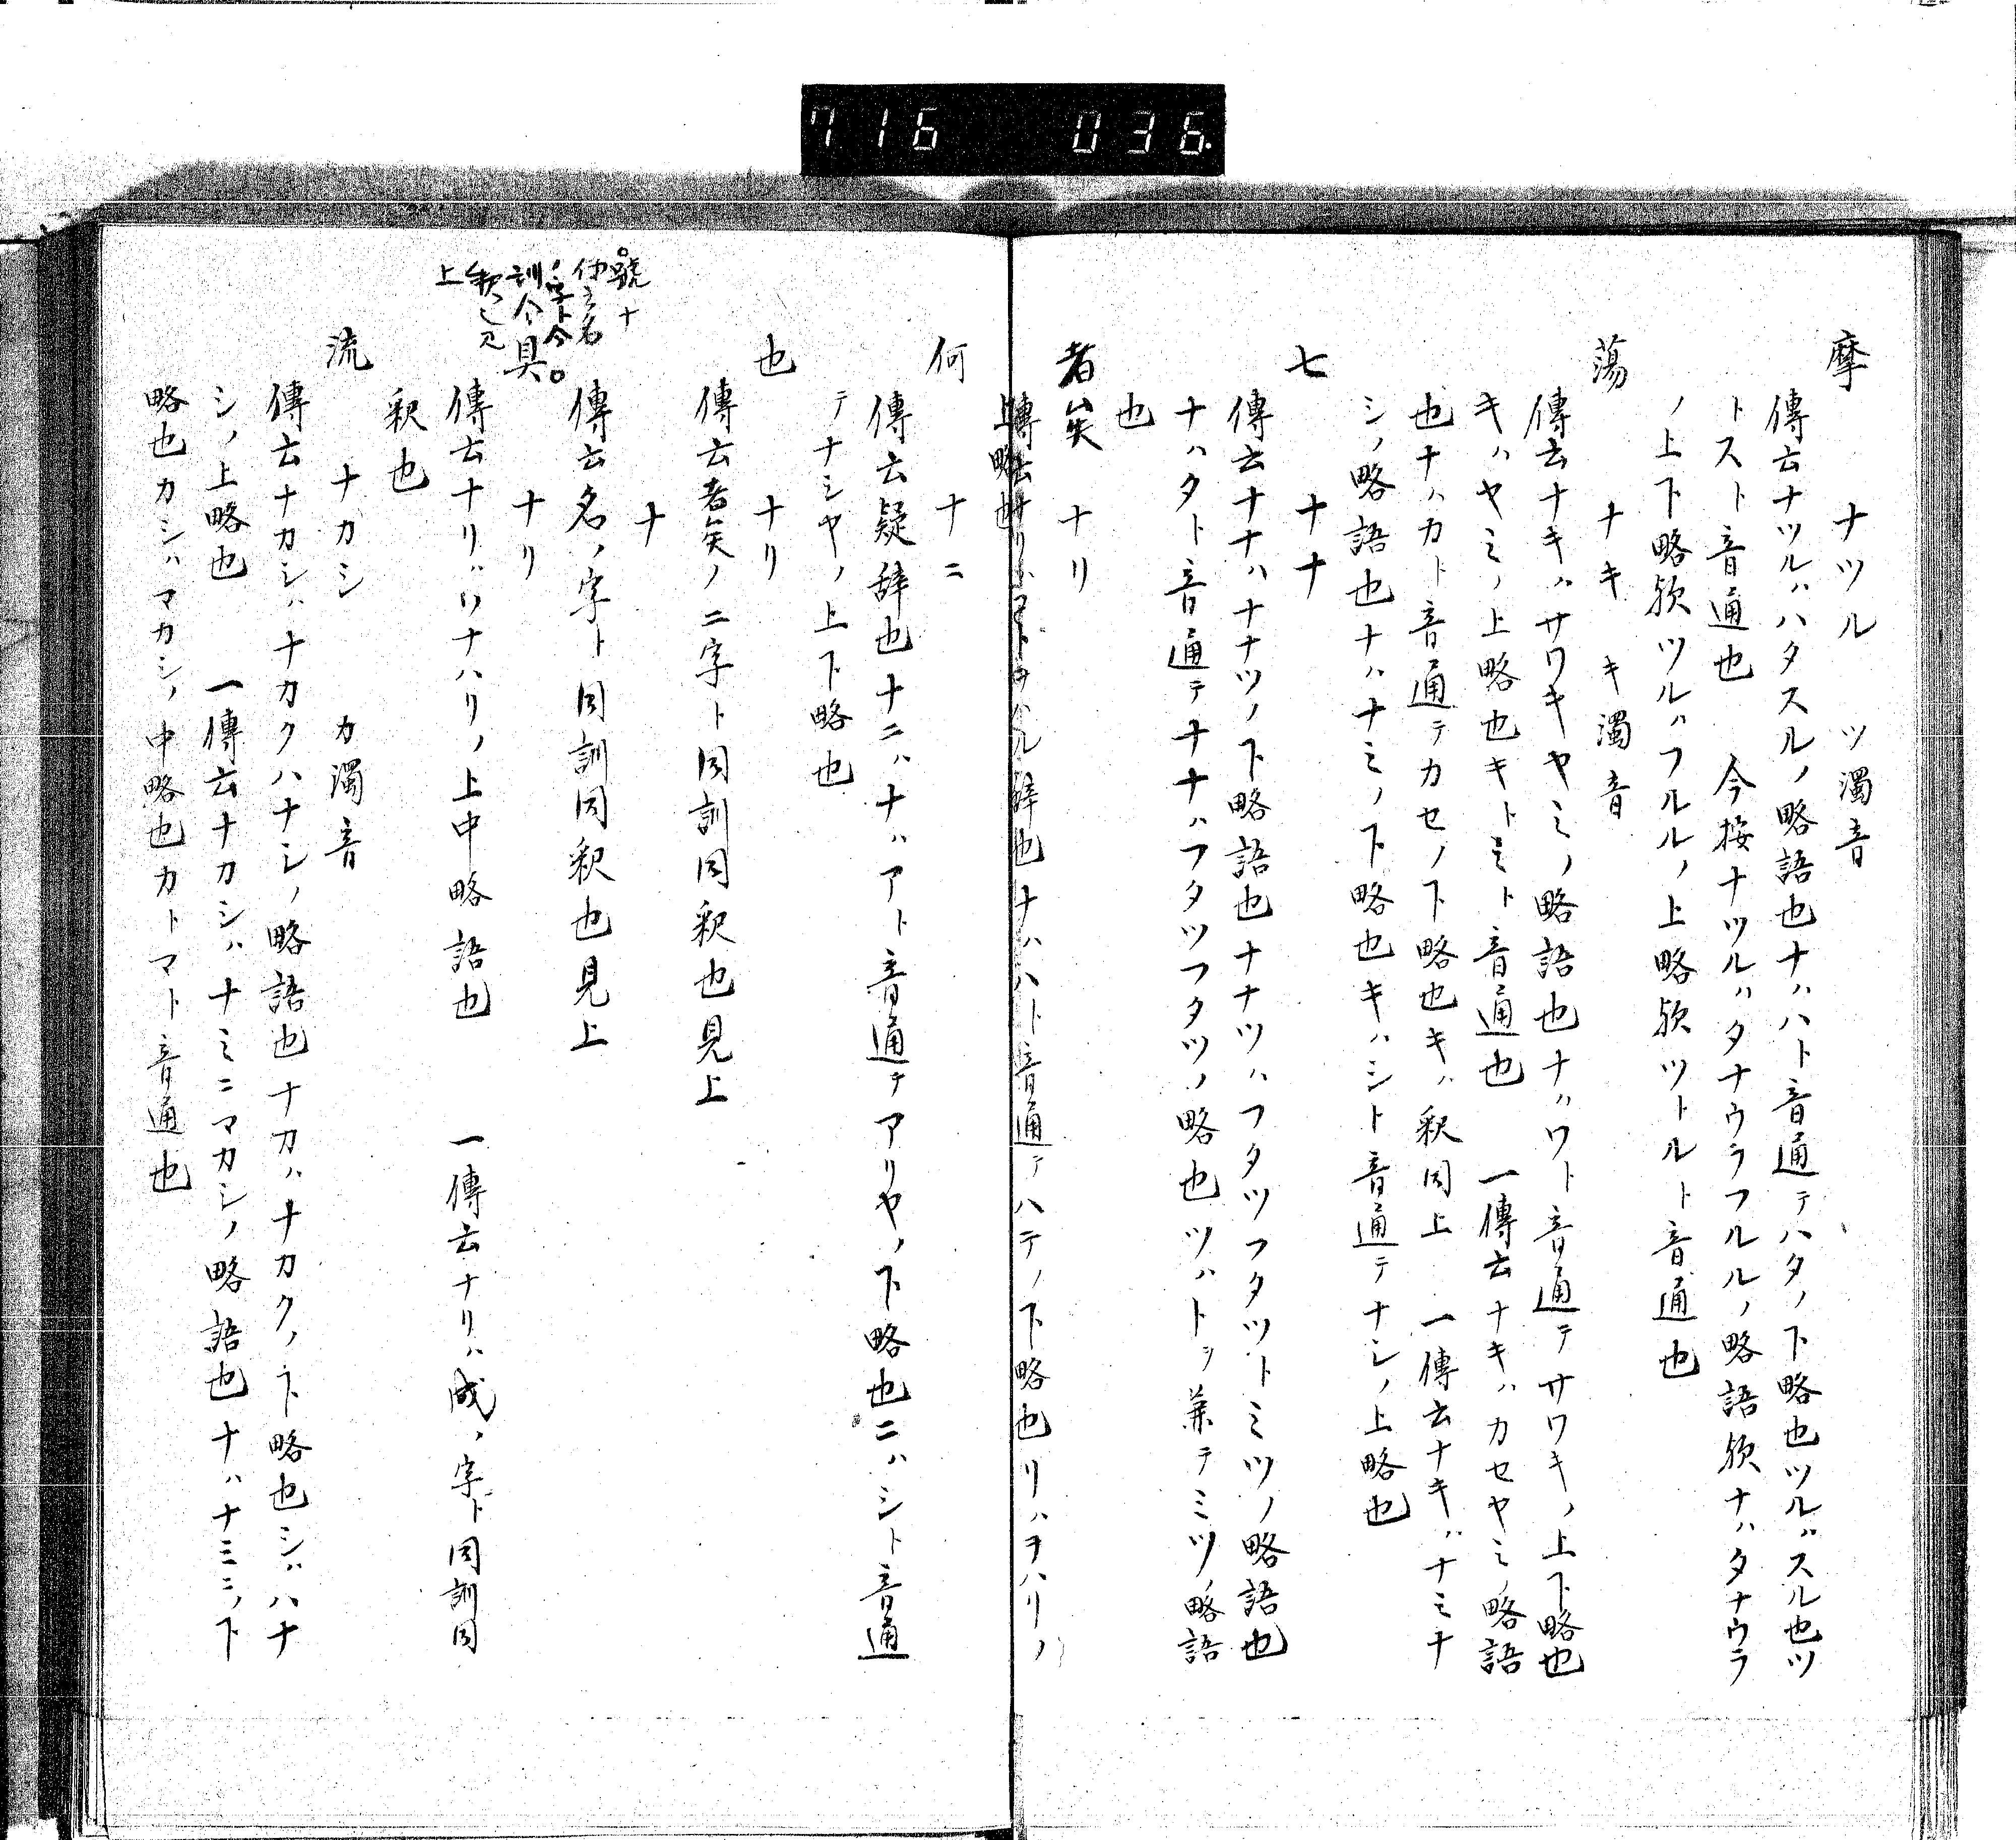 716 036.
摩 ナツル ツ濁音
傳云ナツルハハタスルノ略語也ナハハト音通テハタノ下略也ツルハスル也ツ
トスト音通也 今按ナツルハタナウラフルルノ略語欤ナハタナウラ
ノ上下略欤ツルハフルルノ上略欤ツトルト音通也
蕩 ナキ キ濁音
傳云ナキハサワキヤミノ略語也ナハワト音通テサワキノ上下略也
キハヤミノ上略也キトミト音通也 一傳云ナキハカセヤミノ略語
也ナハカト音通テカセノ下略也キハ釈同上 一傳云ナキハナミナ
シノ略語也ナハナミノ下略也キハシト音通テナシノ上略也
七 ナナ
傳云ナナハナナツノ下略語也ナナツハフタツフタツトミツノ略語也
ナハタト音通テナナハフタツフタツノ略也ツハトヲ兼テミツノ略語
也
者矣 ナリ
傳云ナリハ辞也ナハハト音通テハテノ下略也リハヲハリノ
上略也
何 ナニ
傳云疑辞也ナニハナハアト音通テアリヤノ下略也ニハシト音通
テナシヤノ上下略也
也 ナリ
傳云者矣ノ二字ト同訓同釈也見上
號 ナ
傳云名ノ字ト同訓同釈也見上
ナリ
傳云ナリハワナハリノ上中略語也 一傳云ナリハ成ノ字ト同訓同
釈也
流 ナカシ カ濁音
傳云ナカシハナカクハナシノ略語也ナカハナカクノ下略也シハハナ
シノ上略也 一傳云ナカシハナミニマカシノ略語也ナハナミニノ下
略也カシハマカシノ中略也カトマト音通也